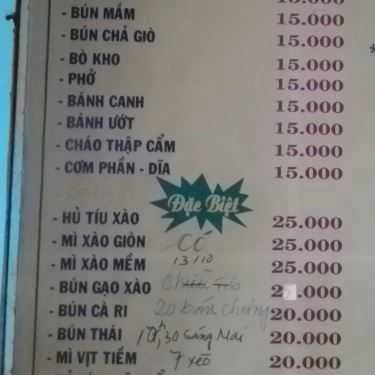 - BÚN MẮM 15.000
- BÚN CHẢ GIÒ 15.000
- BÒ KHO 15.000
- PHỞ 15.000
- BÁNH CANH 15.000
- BÁNH ƯỚT 15.000
- CHÁO THẬP CẨM 15.000
- CƠM PHẦN - DĨA 15.000
Đặc Biệt
- HỦ TÍU XÀO 25.000
- MÌ XÀO GIÒN CÓ 25.000
- MÌ XÀO MỀM 13/10 25.000
- BÚN GẠO XÀO .000
- BÚN CÀ RI 20 20.000
- BÚN THÁI 20.000
- MÌ VỊT TIỀM 20.000